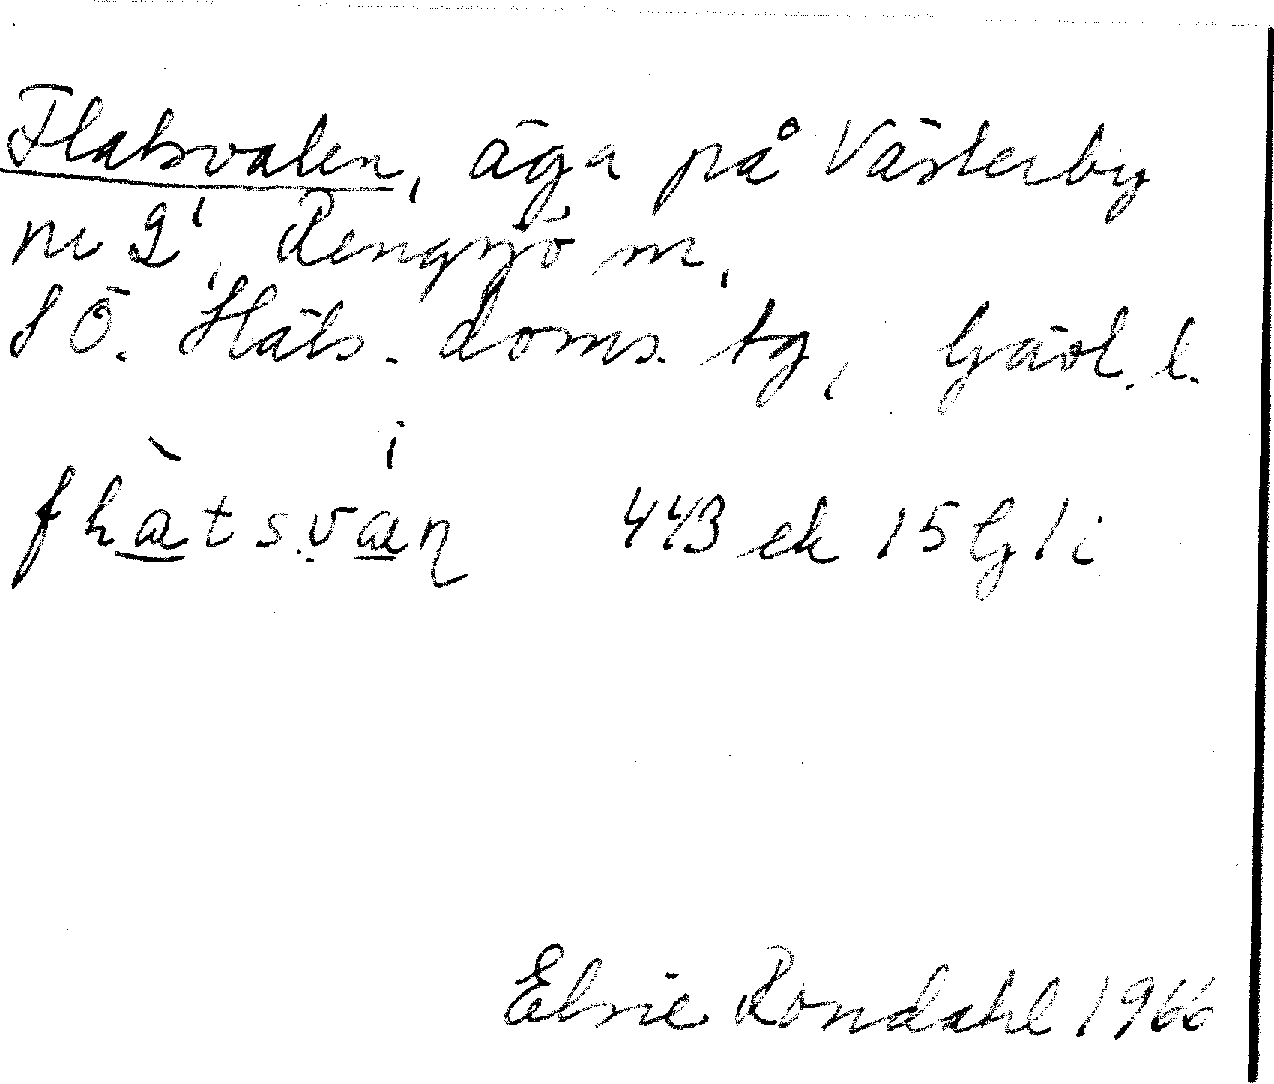 Flatsvalen, äga på Västerby
nr 2, Rengsjö sn,
SÖ. Häls. doms. tg, Gävl. l.
443 ek 15 G 1 i
Elsie Rondahl 1966